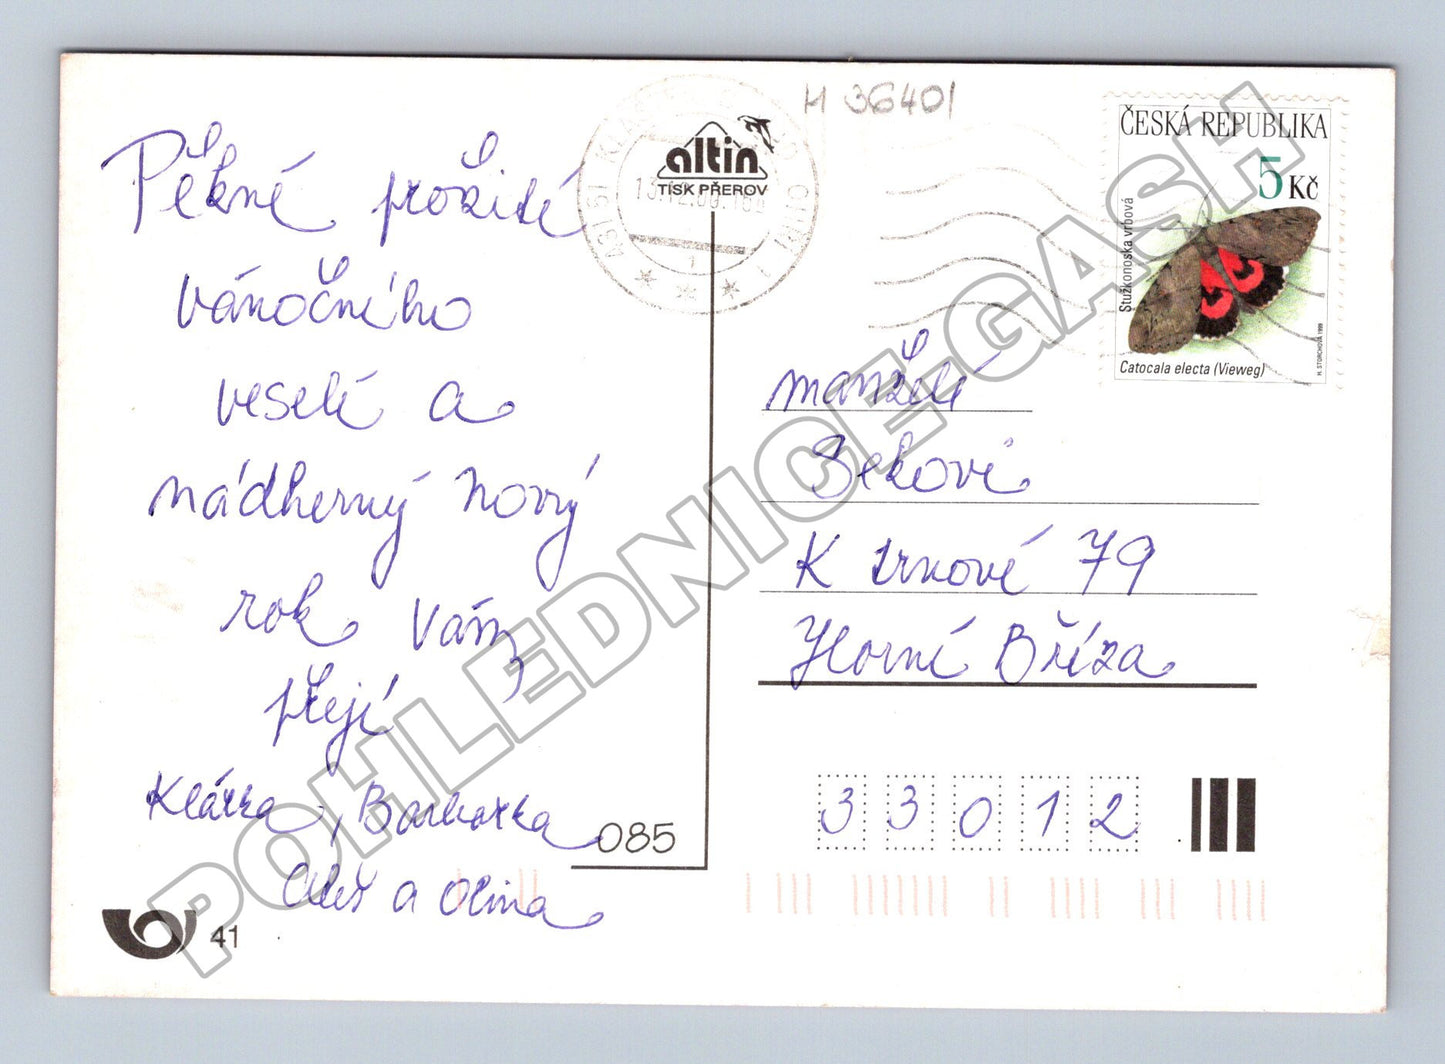 Pěkné prožité
vánočního
veselé a
nádherný nový
rok Vám
přejí
Klárka, Barborka
Aleš a Olina
altin
TISK PŘEROV
085
41
H 36401
ČESKÁ REPUBLIKA
5 Kč
Stužkonoska vrbová
Catocala electa (Vieweg)
H. STORCHOVÁ 1999
manželé
Sekovi
K trnové 79
Horní Bříza
33012
POHLEDNICE-GASH